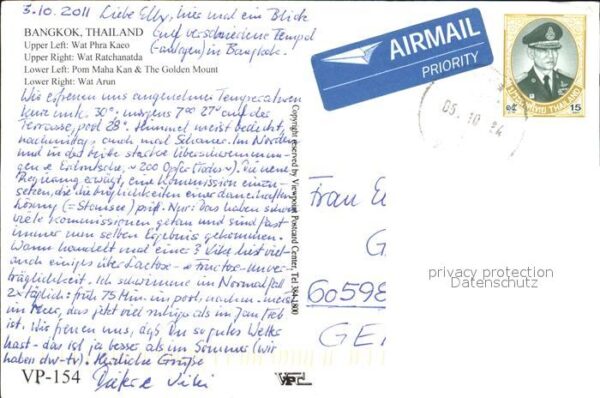 3.10.2011 Liebe Elly, hier mal ein Blick
auf verschiedene Tempel
(-anlagen) in Bangkok.
BANGKOK, THAILAND
Upper Left: Wat Phra Kaeo
Upper Right: Wat Ratchanatda
Lower Left: Pom Maha Kan & The Golden Mount
Lower Right: Wat Arun
Wir erfreuen uns angenehmer Temperaturen
30°, morgens 7°° 27° auf der
Terrasse, pool 28°. Himmel meist bedeckt,
nachmittags auch mal Schauer. Im Norden
und in das starke Überschwemmun-
gen & Erdrutsche, ~200 Opfer (Todes~). Die neue
Regierung erwägt, eine Kommission einzu-
setzen, die die Möglichkeiten einer dauerhaften
Lösung (= Stausee) prüft. Nur: Das haben schon
viele Kommissionen getan und sind fast
immer zum selben Ergebnis gekommen.
Wann handelt mal eine? Uki liest viel
auch einiges über Lactose- & Fructose-Unver-
träglichkeit. Ich schwimme im Normalfall
2x täglich: früh 75 Min im pool, nachm. meist
im Meer, das jetzt viel ruhiger als im Jan/Feb
ist. Wir freuen uns, daß Ihr so gutes Wetter
habt - das ist ja besser als im Sommer (wir
haben dw-tv). Herzliche Grüße
Dieter &
VP-154
Copyright reserved by Viewpoint Postcard Center, Tel.
VPC
AIRMAIL
PRIORITY
15
05.10
Frau E
G
60598
GE
privacy protection
Datenschutz